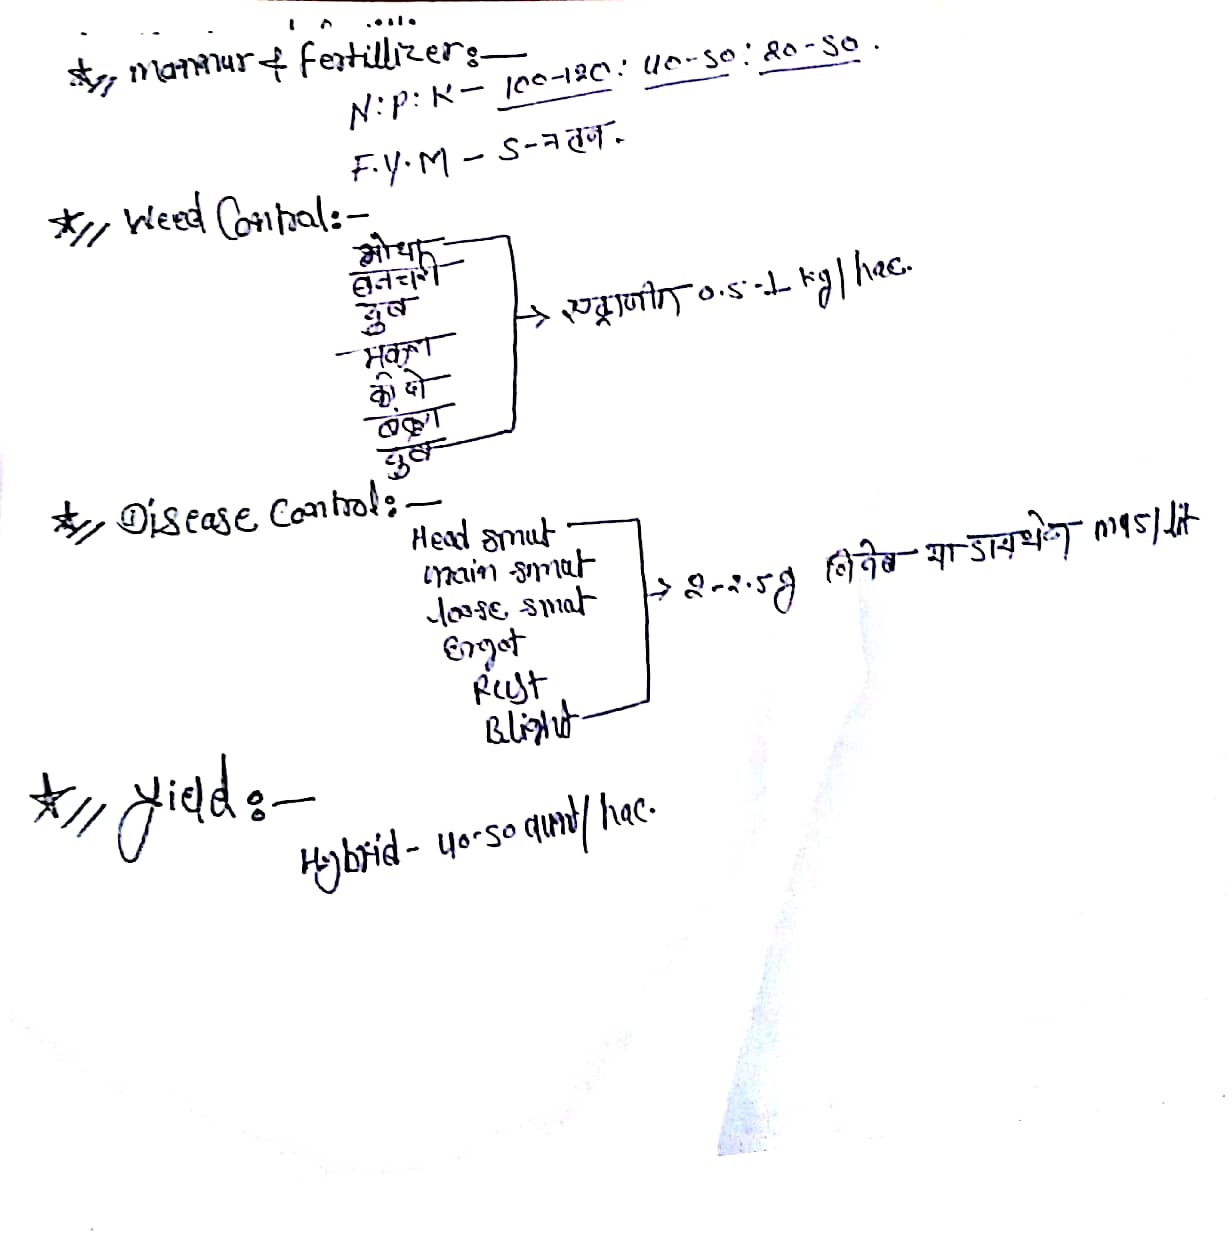 Mannur & Fertillizer:—
N:P:K— 100-120: 40-50: 20-50.
F.Y.M — 5-7 टन.
Weed Control:-
मोथा
दुब
मकरा
कोदो
दुब
→ एट्राजीन 0.5-1 kg/hac.
Disease Control:—
Head smut
Grain smut
loose smut
Ergot
Rust
Blight
→ 2-2.5g जिनेब या डायथेन M45/lit
Yield:—
Hybrid- 40-50 quint/hac.